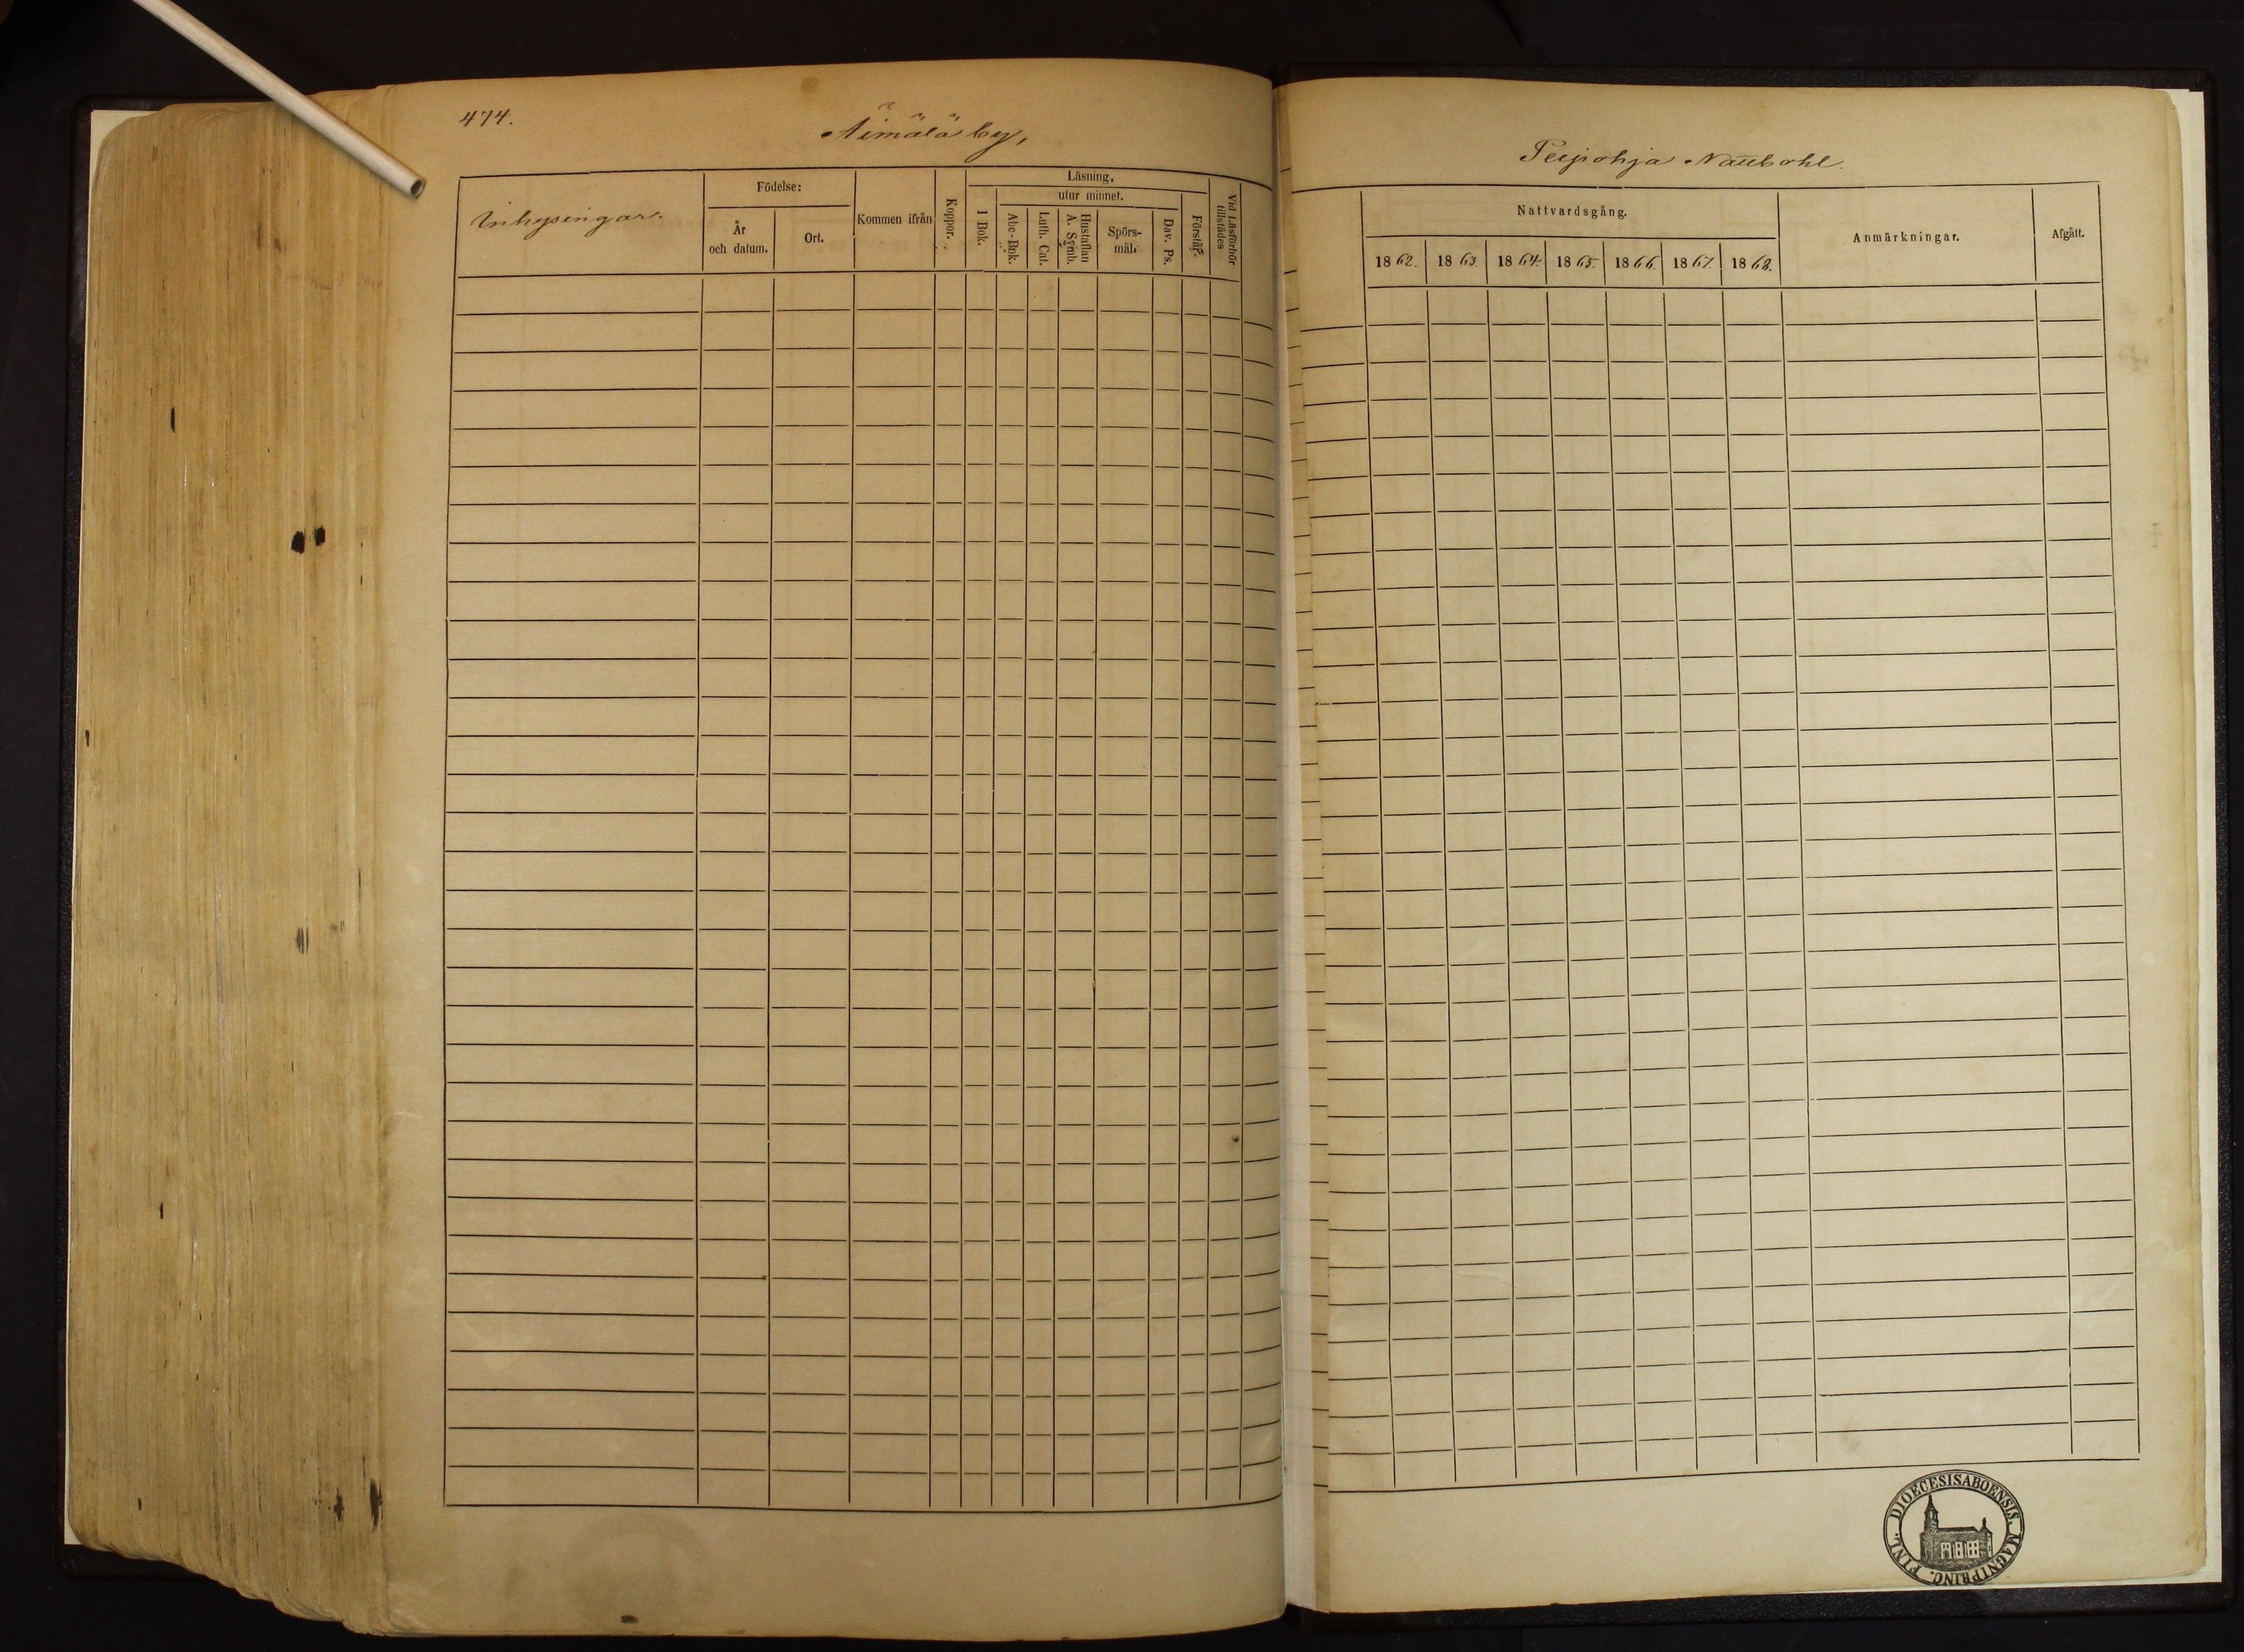 474.
Äimälä by,
Inhysingar.
Födelse:
År och datum.
Ort.
Kommen ifrån
Koppor.
Läsning,
I Bok.
utur minnet.
Abc-Bok.
Luth. Cat.
Hustaflan A. Symb.
Spörs-mål.
Dav. Ps.
Förstår.
Vid Läsförhör tillstädes
Peipohja Nattbohl.
Nattvardsgång.
1862. 1863. 1864. 1865. 1866. 1867. 1868.
Anmärkningar.
Afgått.
DIOECESIS ABOENSIS. MAGNI PRINC. FINL.